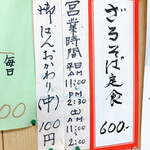 ざるそば定食
600-
営業時間
平日
AM
11:00
PM
2:30
土
AM
11:00
2:00
御はんおかわり(中)100円
毎日
00